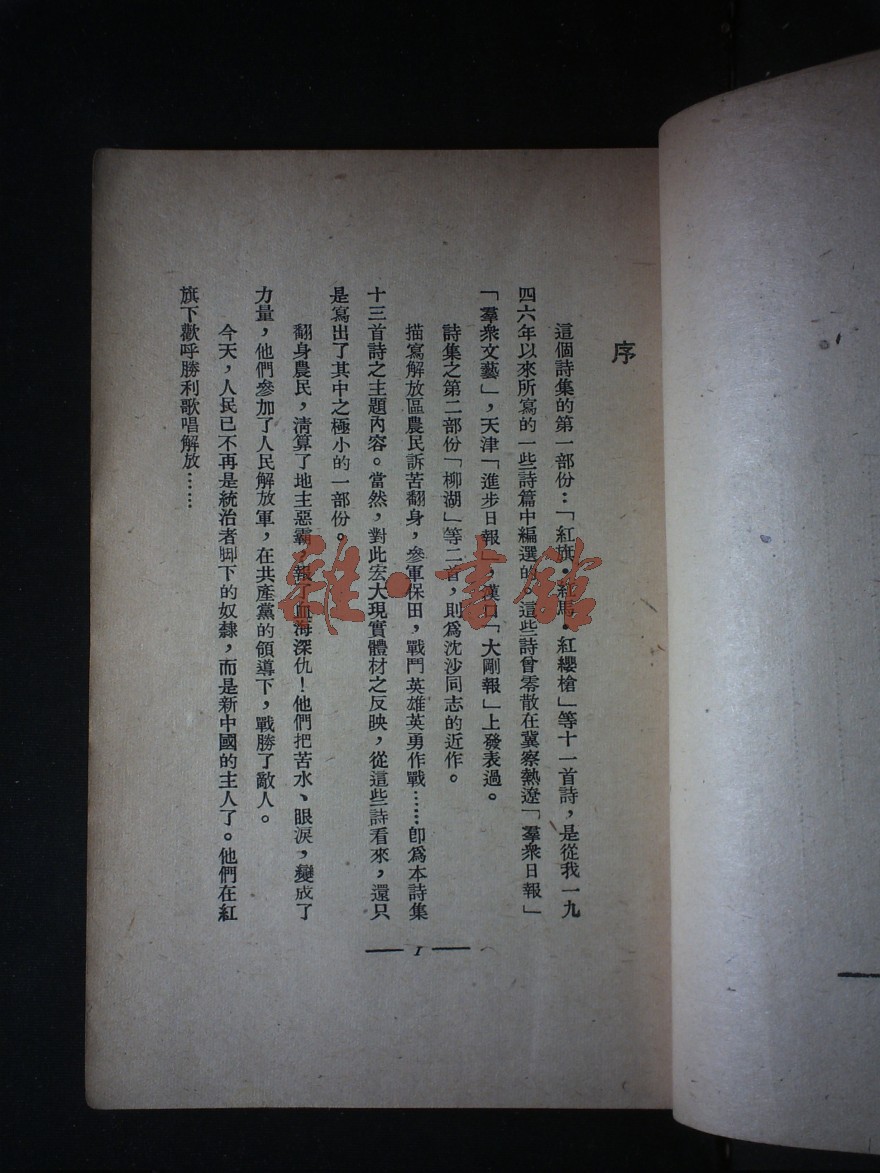 序
這個詩集的第一部份：「紅旗·紅馬·紅纓槍」等十一首詩，是從我一九
四六年以來所寫的一些詩篇中編選的。這些詩曾零散在冀察熱遼「羣衆日報」
「羣衆文藝」，天津「進步日報」，漢口「大剛報」上發表過。
詩集之第二部份「柳湖」等二首，則爲沈沙同志的近作。
描寫解放區農民訴苦翻身，參軍保田，戰鬥英雄英勇作戰……卽爲本詩集
十三首詩之主題內容。當然，對此宏大現實體材之反映，從這些詩看來，還只
是寫出了其中之極小的一部份。
翻身農民，清算了地主惡霸，報了血海深仇！他們把苦水、眼淚，變成了
力量，他們參加了人民解放軍，在共產黨的領導下，戰勝了敵人。
今天，人民已不再是統治者脚下的奴隸，而是新中國的主人了。他們在紅
旗下歡呼勝利歌唱解放……
1
雜·書館